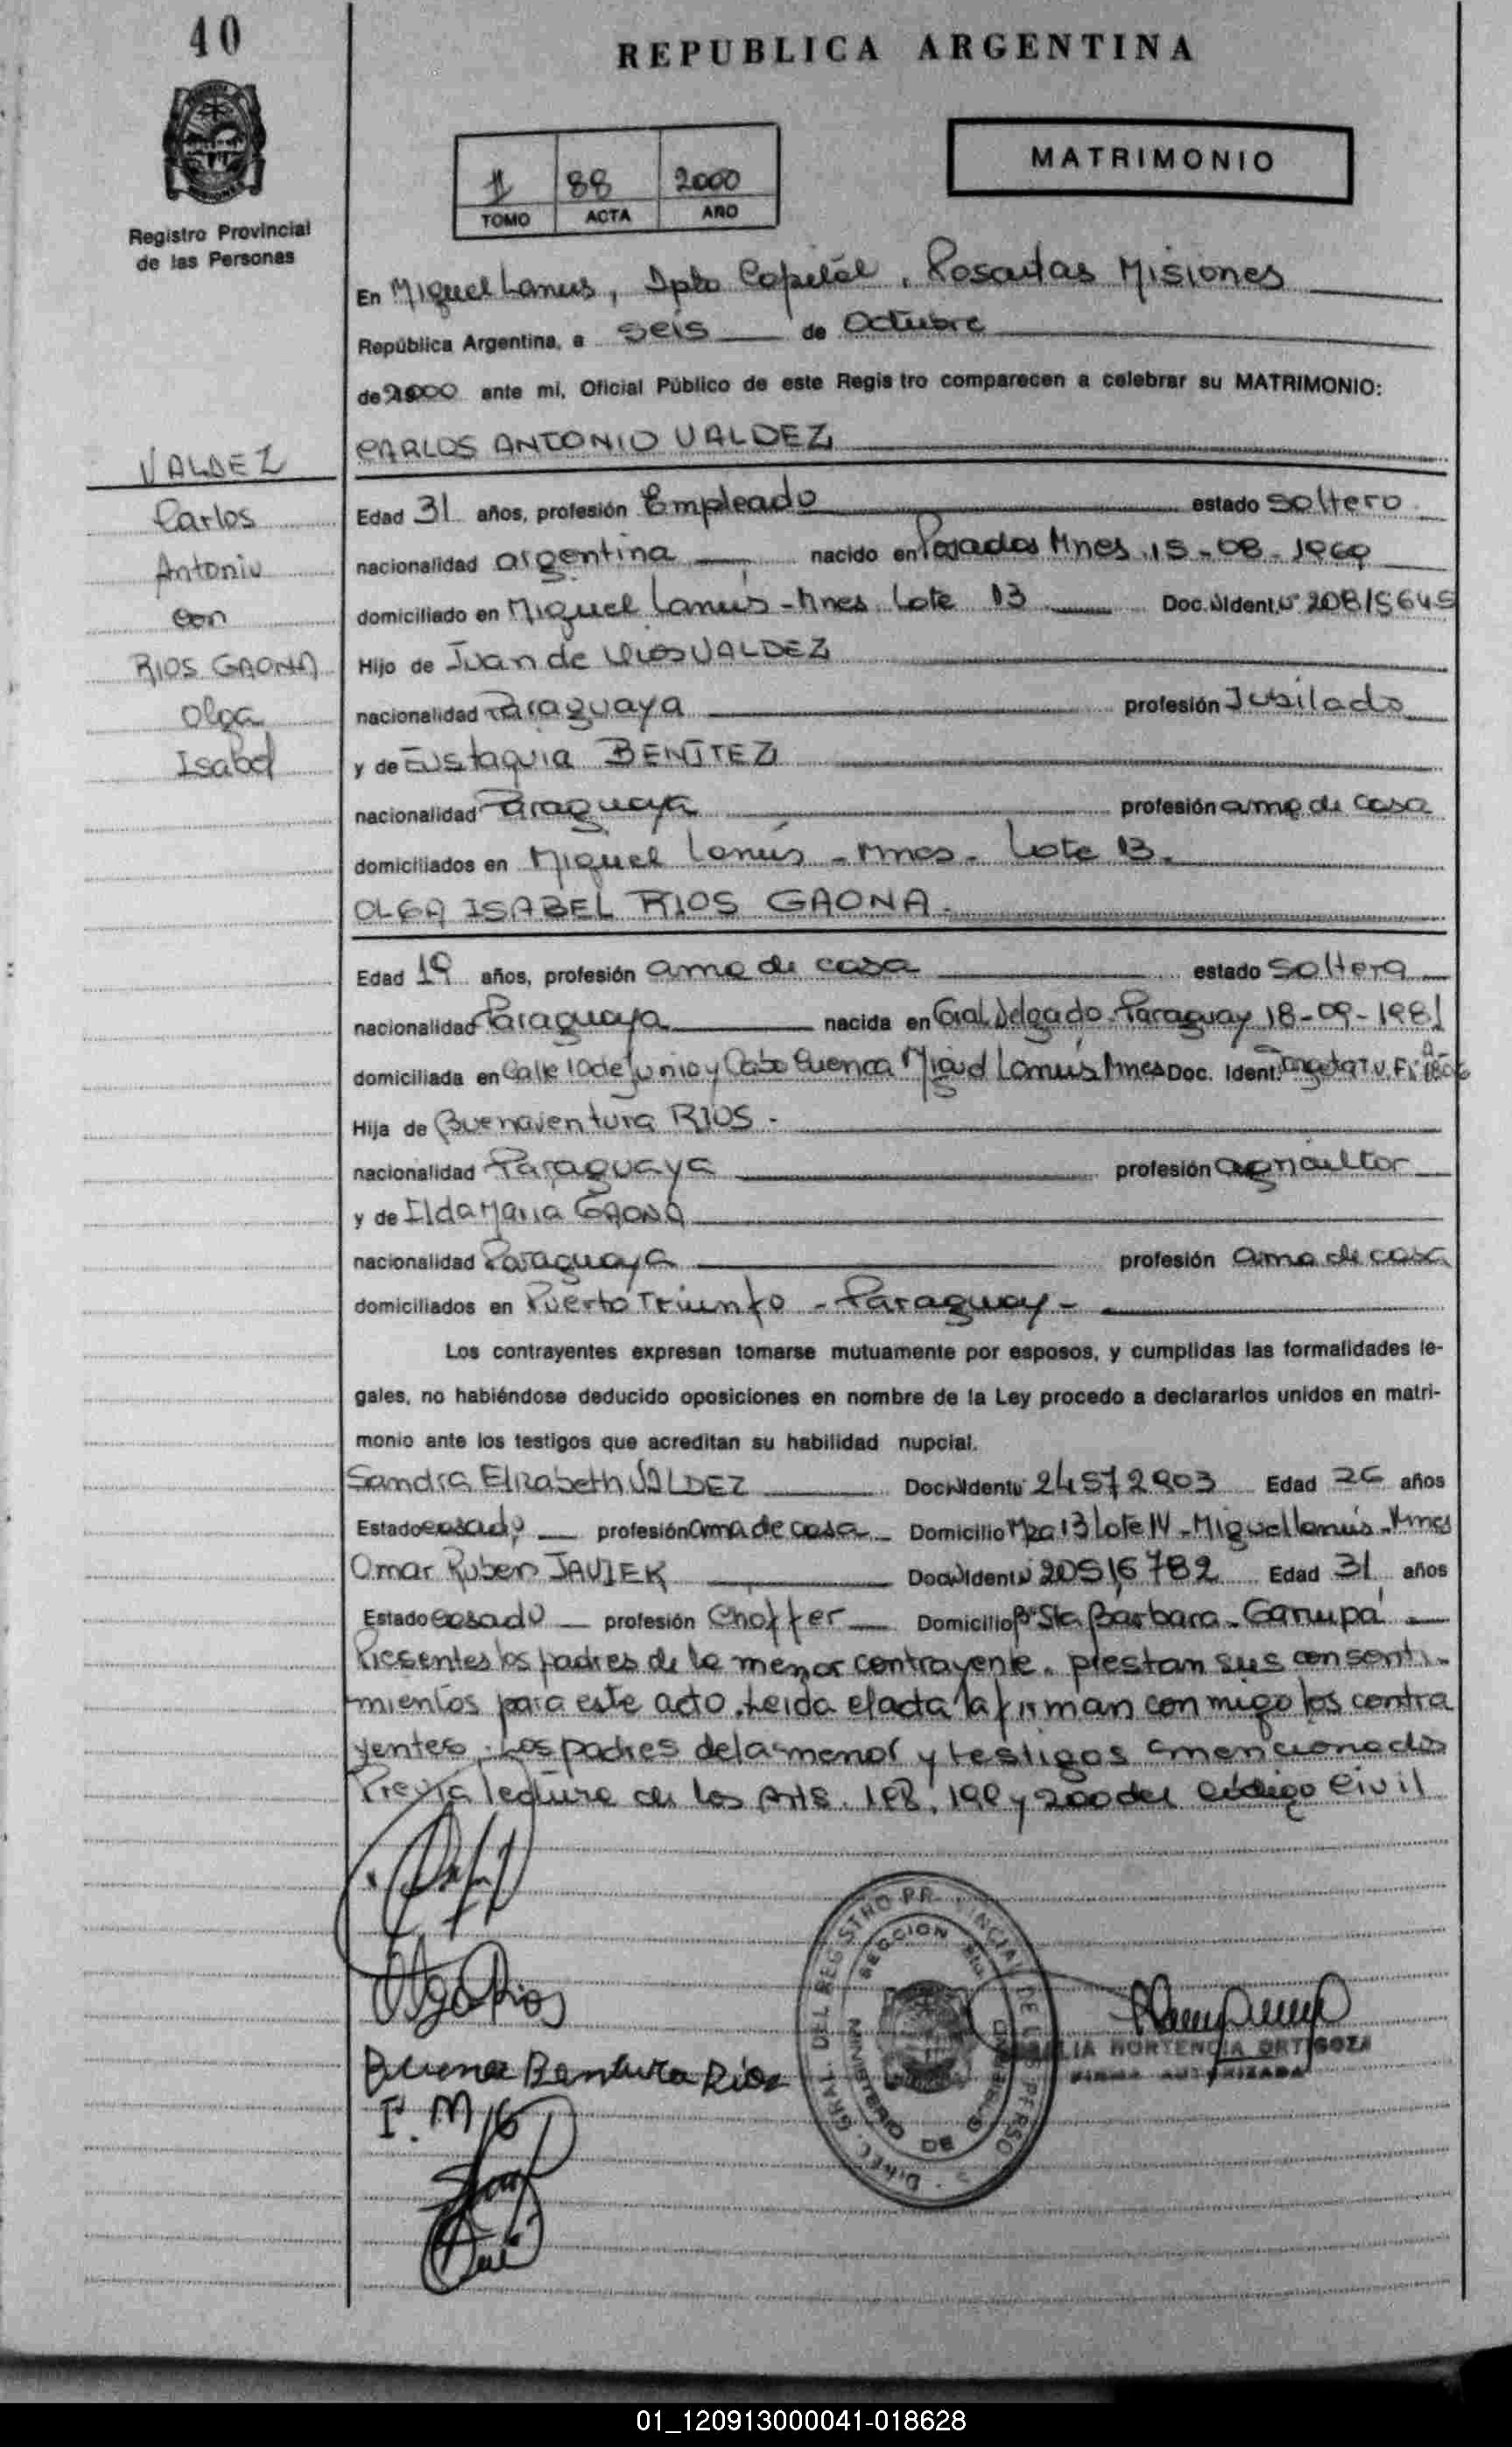 40
REPUBLICA ARGENTINA
Registro Provincial
de las Personas
1 88 2000
TOMO ACTA AÑO
MATRIMONIO
En Miguel Lanus, Dpto Capitál, Posadas Misiones
República Argentina, a seis de Octubre
de 2000 ante mi, Oficial Público de este Regis tro comparecen a celebrar su MATRIMONIO:
CARLOS ANTONIO VALDEZ
VALDEZ
Carlos
Antonio
con
RIOS GAONA
Olga
Isabel
Edad 31 años, profesión Empleado estado soltero
nacionalidad argentina nacido en Posadas Mnes 15-08-1969
domiciliado en Miguel Lanús - Mnes Lote 13 Doc. Ident. Nº 20815645
Hijo de Juan de Dios VALDEZ
nacionalidad Paraguaya profesión Jubilado
y de Eustaquia BENITEZ
nacionalidad Paraguaya profesión ama de casa
domiciliados en Miguel Lanús - Mnes - Lote 13.
OLGA ISABEL RIOS GAONA.
Edad 19 años, profesión ama de casa estado soltera
nacionalidad Paraguaya nacida en Gral. Delgado - Paraguay 18-09-1981
domiciliada en Calle 10 de Junio y Cabo Cuenca Miguel Lanús Mnes Doc. Ident.
Hija de Buenaventura RIOS -
nacionalidad Paraguaya profesión agricultor
y de Ilda Maria GAONA
nacionalidad Paraguaya profesión ama de casa
domiciliados en Puerto Triunfo - Paraguay -
Los contrayentes expresan tomarse mutuamente por esposos, y cumplidas las formalidades le-
gales, no habiéndose deducido oposiciones en nombre de la Ley procedo a declararlos unidos en matri-
monio ante los testigos que acreditan su habilidad nupcial.
Sandra Elizabeth VALDEZ Doc. Ident. 24572903 Edad 26 años
Estado casada profesión ama de casa Domicilio Mza 13 Lote 14 - Miguel Lanús - Mnes
Omar Ruben JAVIER Doc. Ident. 20516782 Edad 31 años
Estado casado profesión Choffer Domicilio Bº Sta Bárbara - Garupá
Presentes los padres de la menor contrayente, prestan sus consenti-
mientos para este acto. Leida el acta la firman conmigo los contra
yentes, Los padres de la menor y testigos mencionados
Previa lectura de los Arts. 198, 199 y 200 del código Civil
Olga Rios
Buena Bentura Rios
I. M G
DIREC. GRAL. DEL REGISTRO PROVINCIAL DE LAS PERSONAS
SECCION
HORTENCIA ORTIGOZA
FIRMA AUTORIZADA
01_120913000041-018628